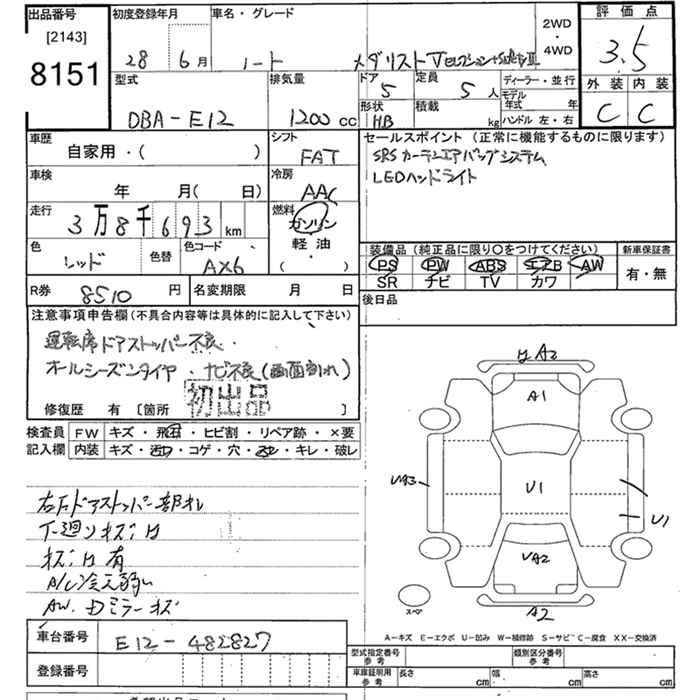 出品番号
[2143]
8151
初度登録年月
28 6月
車名・グレード
ノート メダリスト
2WD
・
4WD
評価点
3.5
外装 内装
C C
型式
DBA-E12
排気量
1200 cc
ドア
5
定員
5 人
形状
HB
積載
kg
ディーラー・並行
モデル
年式 年
ハンドル 左・右
車歴
自家用・( )
シフト
FAT
セールスポイント (正常に機能するものに限ります)
SRS カーテンエアバッグシステム
LEDヘッドライト
車検
年 月( 日)
冷房
AAC
走行
3万8千693 km
燃料
ガソリン
軽油
( )
色
レッド
色替
色コード
AX6
装備品 (純正品に限り○をつけてください)
PS PW ABS エアB AW
SR ナビ TV カワ
新車保証書
有・無
R券
8510 円
名変期限 月 日
後日品
注意事項申告欄 (不具合内容等は具体的に記入して下さい)
運転席ドアストッパー不良
オールシーズンタイヤ・ナビ不良(画面割れ)
初出品
修復歴 有 [箇所 ]
検査員
記入欄
FW キズ・飛石・ヒビ割・リペア跡・×要
内装 キズ・コゲ・穴・キレ・破レ
右フドアストッパー部サビ
下廻りキズ・サ
キズ・サ有
A/C冷え弱い
AW.Dミラーキズ
サA2
A1
UA3
U1
U1
UA2
A2
スペア
A-キズ E-エクボ U-凹み W-補修跡 S-サビ C-腐食 XX-交換済
車台番号
E12-482827
登録番号
型式指定番号
参考
類別区分番号
参考
車庫証明用
参考
長さ cm
幅 cm
高さ cm